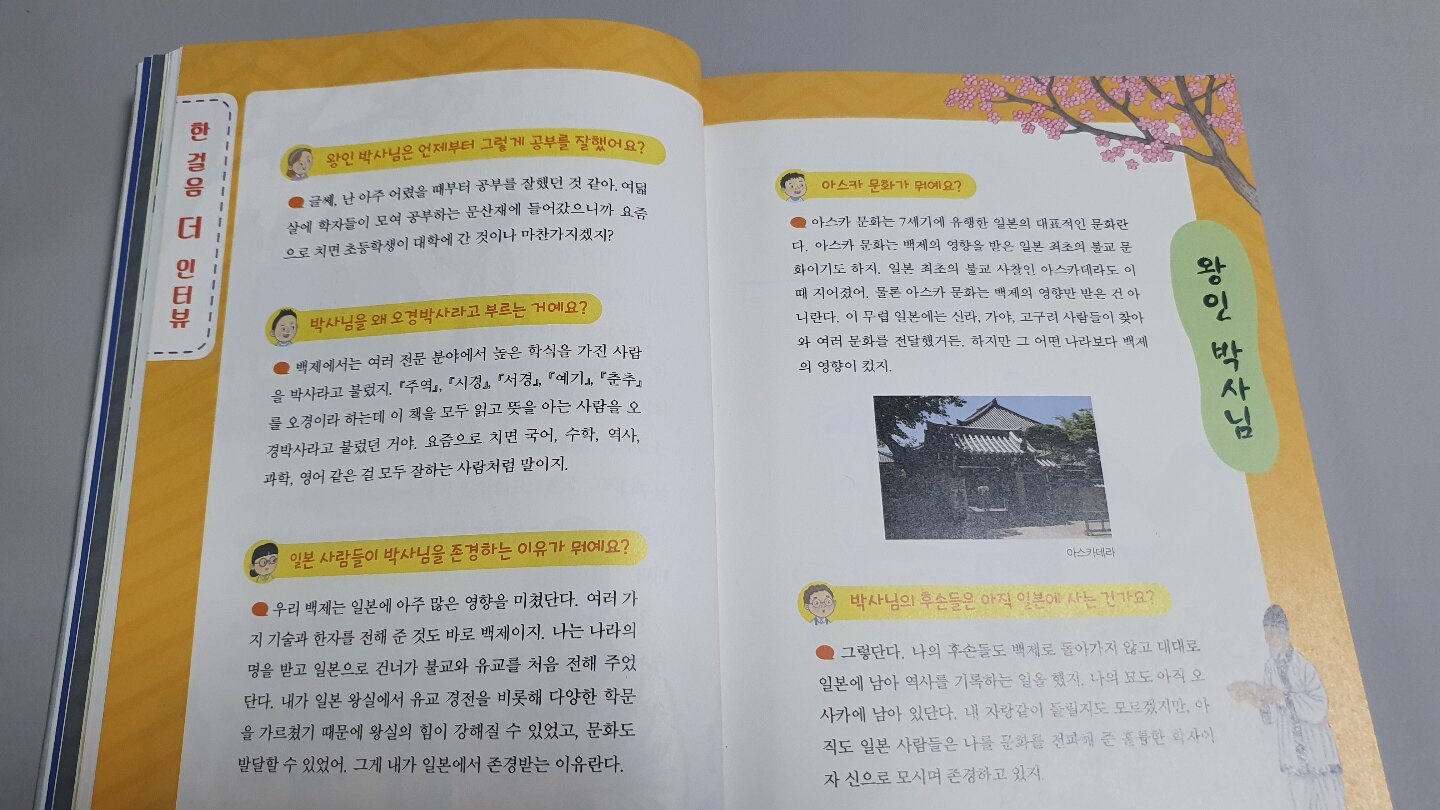 한 걸음 더 인터뷰
왕인 박사님은 언제부터 그렇게 공부를 잘했어요?
글쎄, 난 아주 어렸을 때부터 공부를 잘했던 것 같아. 여덟
살에 학자들이 모여 공부하는 문산재에 들어갔으니까 요즘
으로 치면 초등학생이 대학에 간 것이나 마찬가지겠지?
박사님을 왜 오경박사라고 부르는 거예요?
백제에서는 여러 전문 분야에서 높은 학식을 가진 사람
을 박사라고 불렀지. 『주역』, 『시경』, 『서경』, 『예기』, 『춘추』
를 오경이라 하는데 이 책을 모두 읽고 뜻을 아는 사람을 오
경박사라고 불렀던 거야. 요즘으로 치면 국어, 수학, 역사,
과학, 영어 같은 걸 모두 잘하는 사람처럼 말이지.
일본 사람들이 박사님을 존경하는 이유가 뭐예요?
우리 백제는 일본에 아주 많은 영향을 미쳤단다. 여러 가
지 기술과 한자를 전해 준 것도 바로 백제이지. 나는 나라의
명을 받고 일본으로 건너가 불교와 유교를 처음 전해 주었
단다. 내가 일본 왕실에서 유교 경전을 비롯해 다양한 학문
을 가르쳤기 때문에 왕실의 힘이 강해질 수 있었고, 문화도
발달할 수 있었어. 그게 내가 일본에서 존경받는 이유란다.
아스카 문화가 뭐예요?
아스카 문화는 7세기에 유행한 일본의 대표적인 문화란
다. 아스카 문화는 백제의 영향을 받은 일본 최초의 불교 문
화이기도 하지. 일본 최초의 불교 사찰인 아스카데라도 이
때 지어졌어. 물론 아스카 문화는 백제의 영향만 받은 건 아
니란다. 이 무렵 일본에는 신라, 가야, 고구려 사람들이 찾아
와 여러 문화를 전달했거든. 하지만 그 어떤 나라보다 백제
의 영향이 컸지.
아스카데라
박사님의 후손들은 아직 일본에 사는 건가요?
그렇단다. 나의 후손들도 백제로 돌아가지 않고 대대로
일본에 남아 역사를 기록하는 일을 했지. 나의 묘도 아직 오
사카에 남아 있단다. 내 자랑같이 들릴지도 모르겠지만, 아
직도 일본 사람들은 나를 문화를 전파해 준 훌륭한 학자이
자 신으로 모시며 존경하고 있지.
왕인 박사님